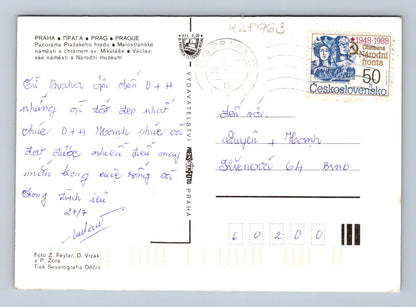 PRAHA • ПРАГА • PRAG • PRAGUE
Panorama Pražského hradu • Malostranské
náměstí s chrámem sv. Mikuláše • Václav-
ské náměstí a Národní muzeum
Từ Praha gửi đến D+H
những gì tốt đẹp nhất
chúc D+H Hạnh phúc và
đạt được nhiều điều may
mắn trong cuộc sống và
trong tình yêu
27/7
Foto Z. Feyfar, D. Vrzák
a P. Zora
Tisk Severografia Děčín
VYDAVATELSTVÍ
PRAHA
PRAHA
1948-1988
Národní
fronta
50
Československo
Duyên + Hạnh
64 Brno
6 0 2 0 0